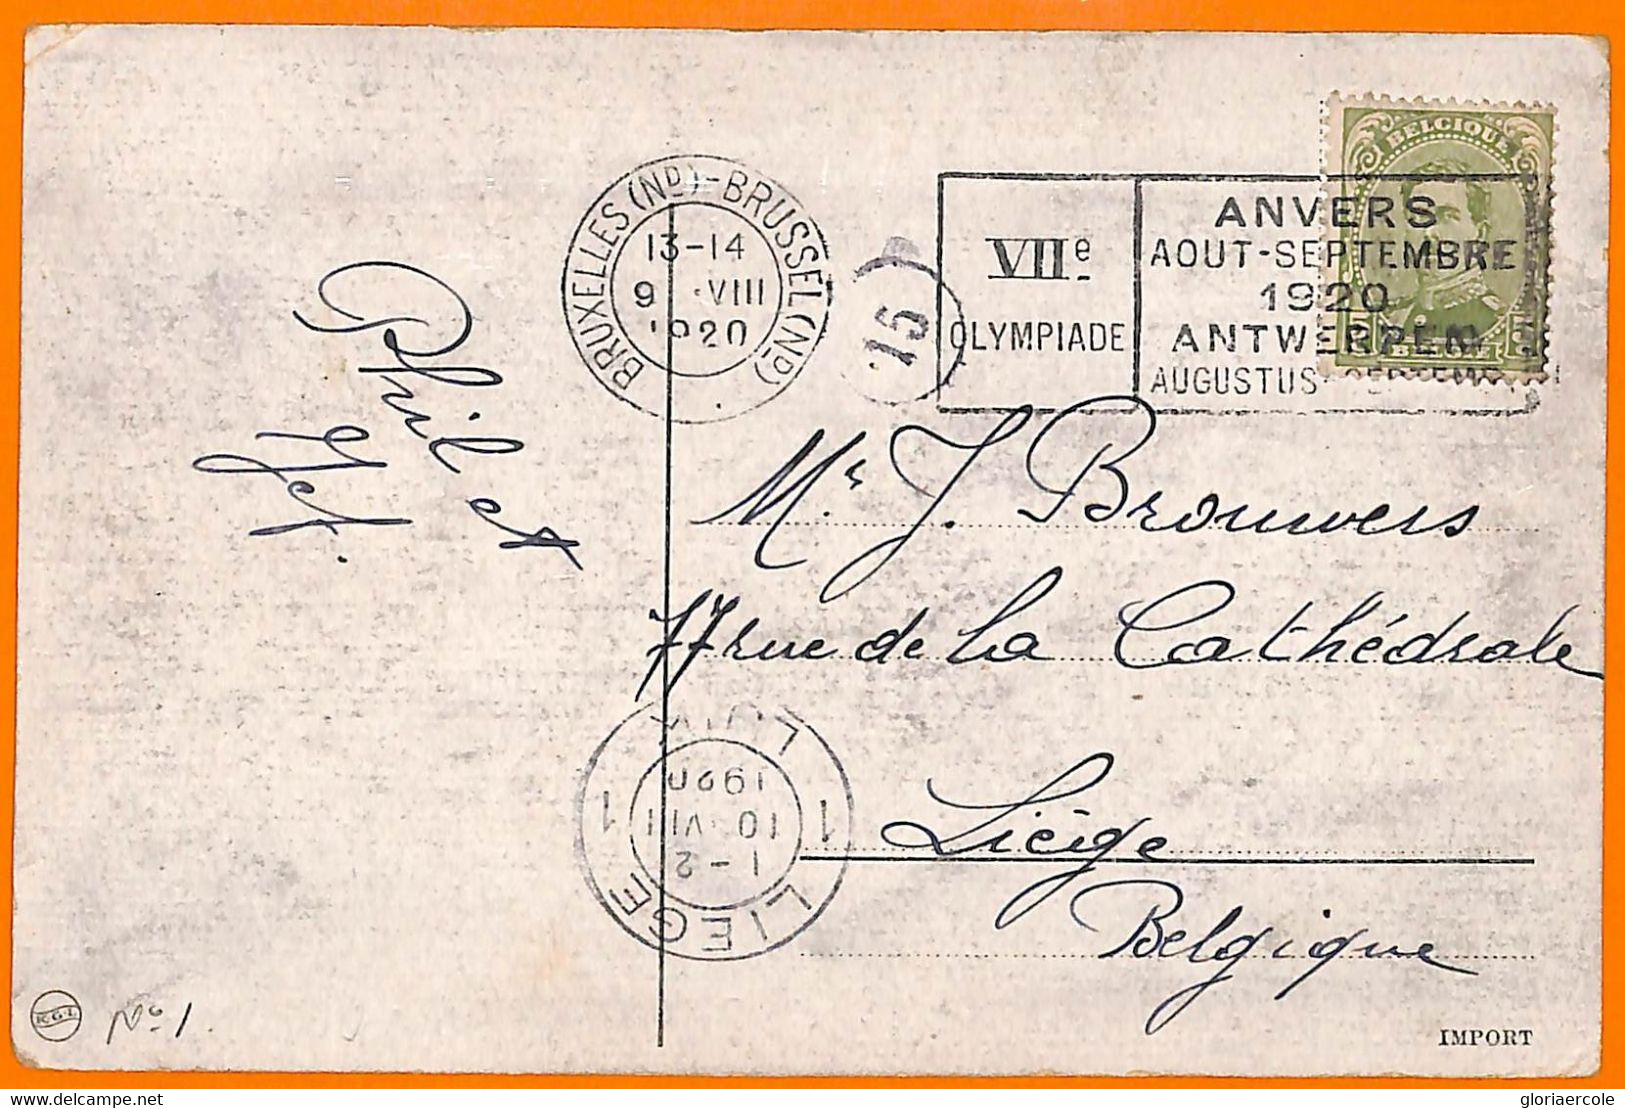 BELGIQUE
BRUXELLES (ND)-BRUSSEL (ND)
13-14
9 VIII
1920
15
VIIe
OLYMPIADE
ANVERS
AOUT-SEPTEMBRE
1920
ANTWERPEN
AUGUSTUS-SEPTEMBER
Phil et
Jef.
Mr. J. Brouwers
77 rue de la Cathédrale
Liège
Belgique
LUIK
1920
10 VIII
1-2
1 LIEGE 1
No. 1.
IMPORT
delcampe.net
gloriaercole